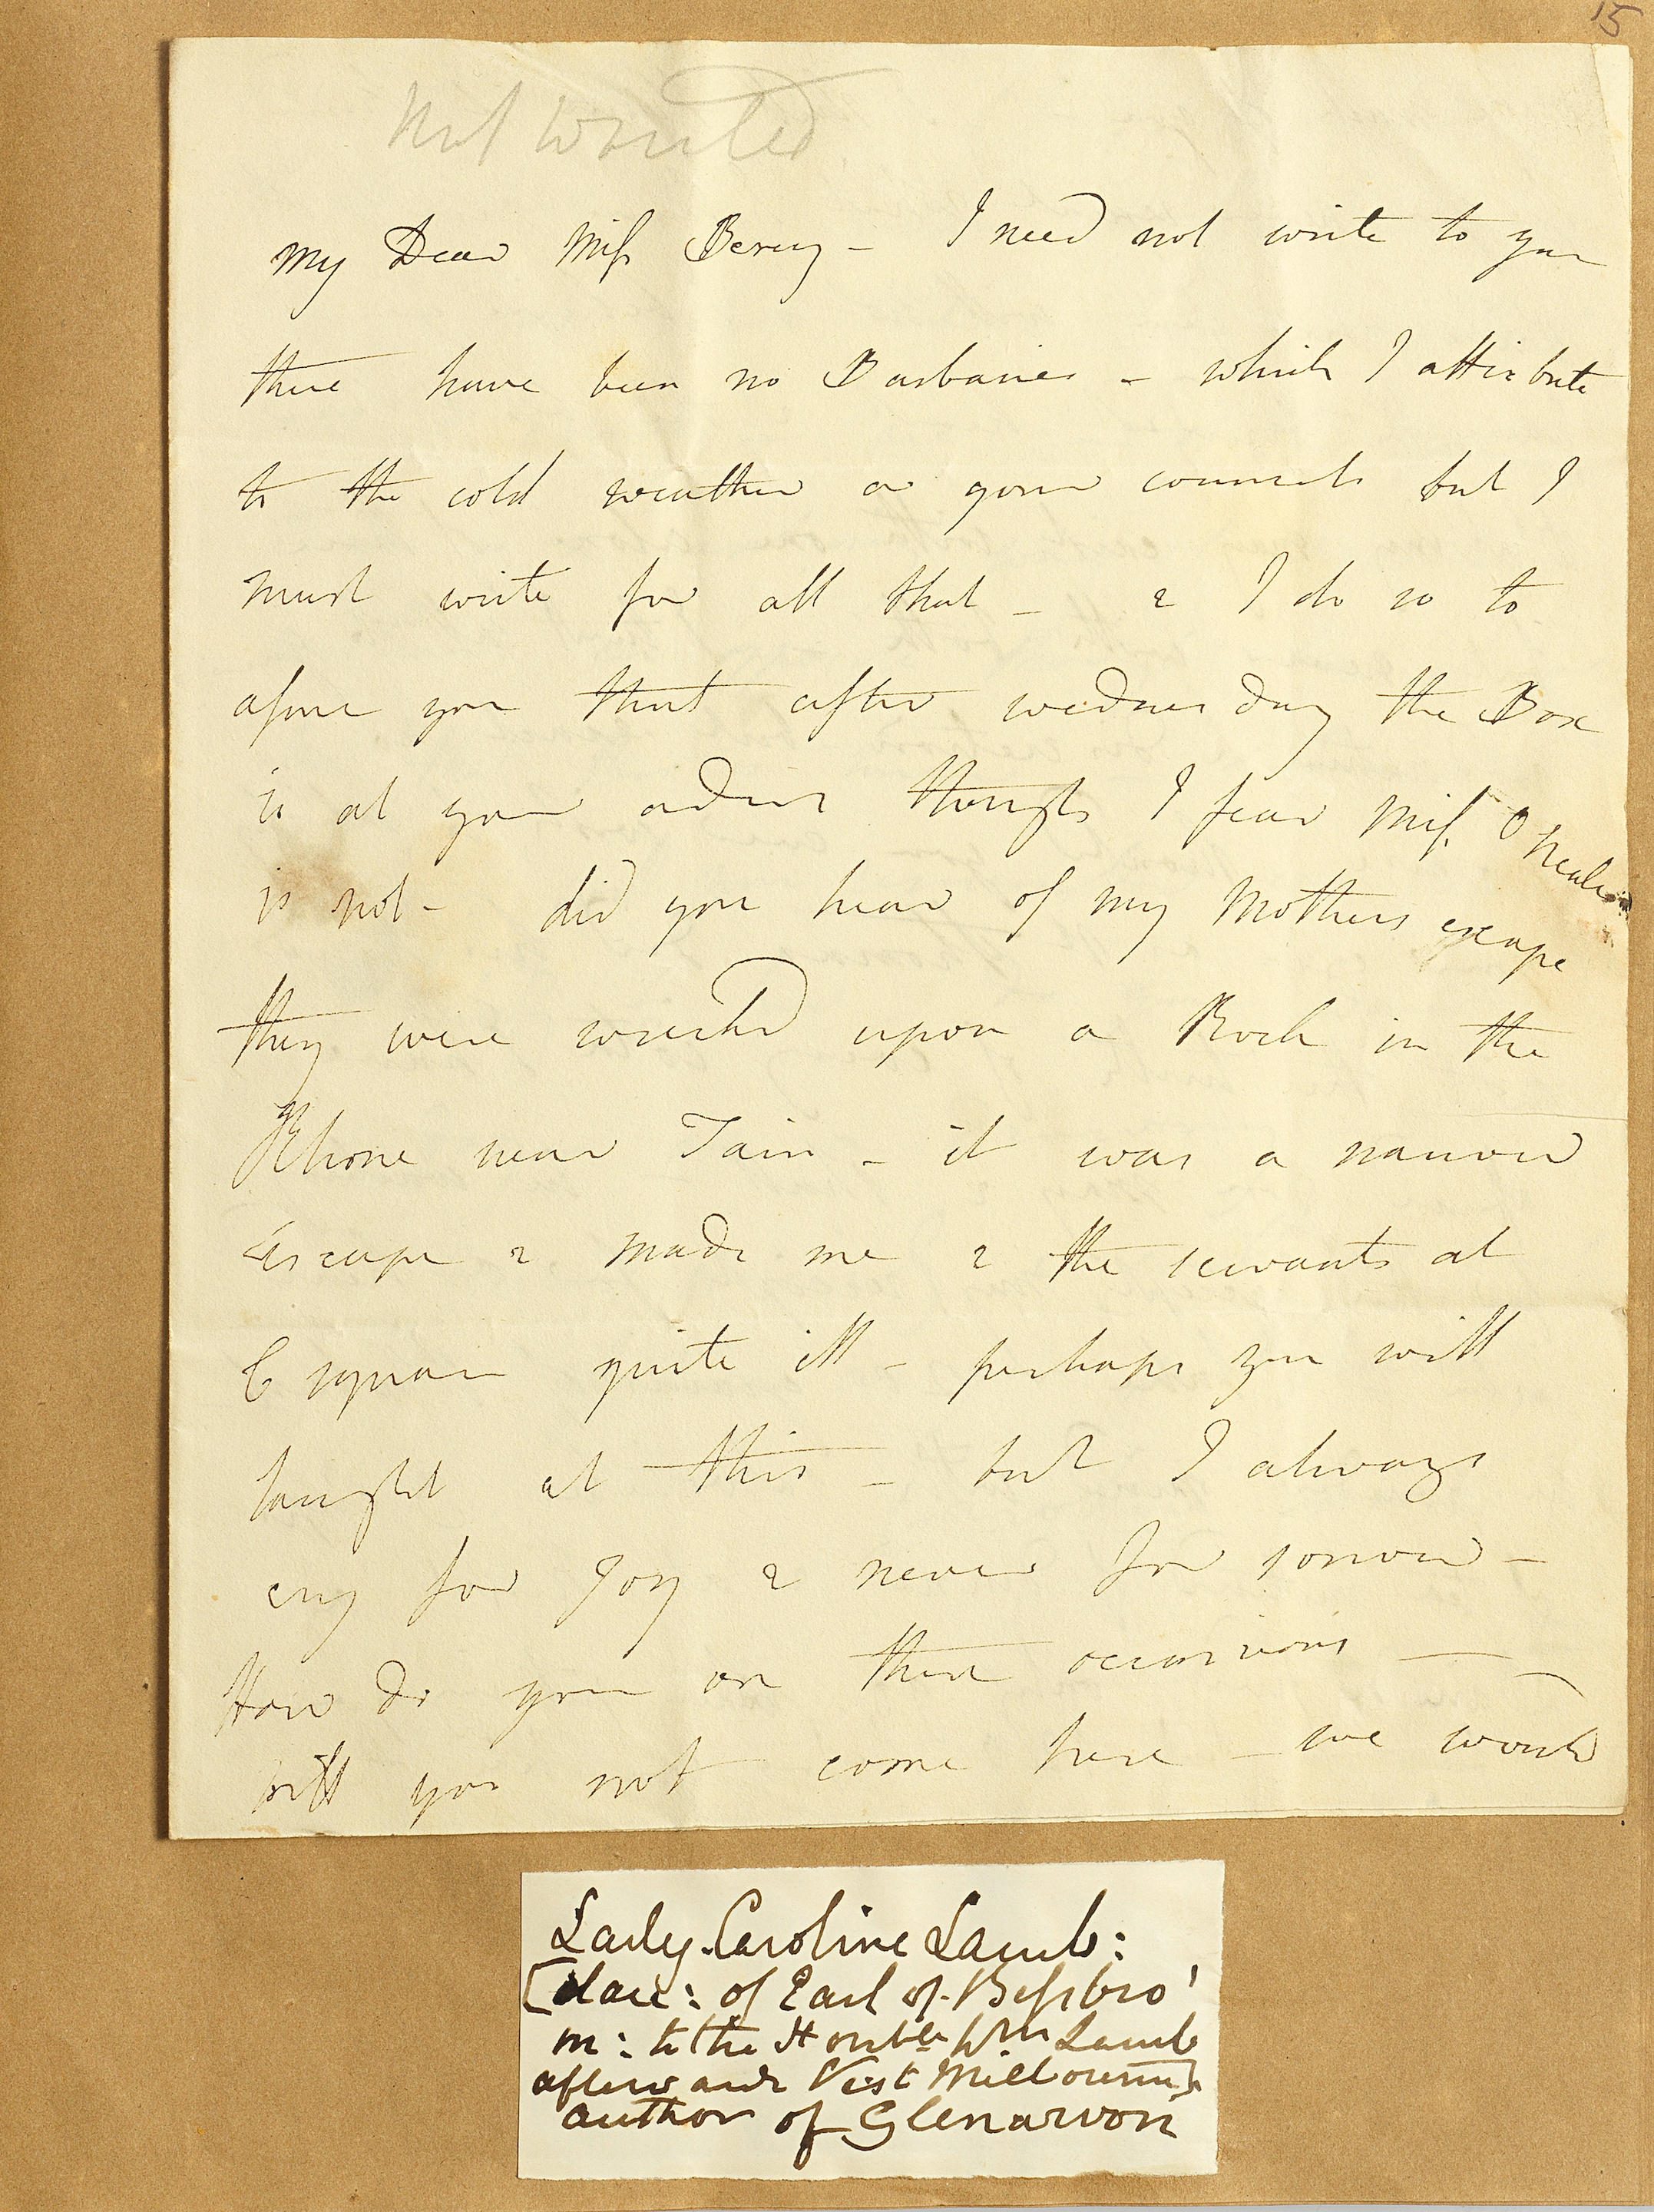 15
Not Wanted
My Dear Miss Berry – I need not write to you
there have been no Barbaries – which I attribute
to the cold weather or your counsels but I
must write for all that – & I do so to
assure you that after wednesday the Box
is at your orders though I fear Miss O Neale
is not – did you hear of my Mothers escape
they were wrecked upon a Rock in the
Rhone near Tain – it was a narrow
Escape & made me & the servants at
C square quite ill – perhaps you will
laught at this – but I always
cry for Joy & never for sorrow –
How do you on these occasions —
will you not come here – we would
Lady Caroline Lamb:
[dau: of Earl of Bessbro'
m: to the Honble Wm Lamb
afterwards Visct Millbourne]
author of Glenarvon